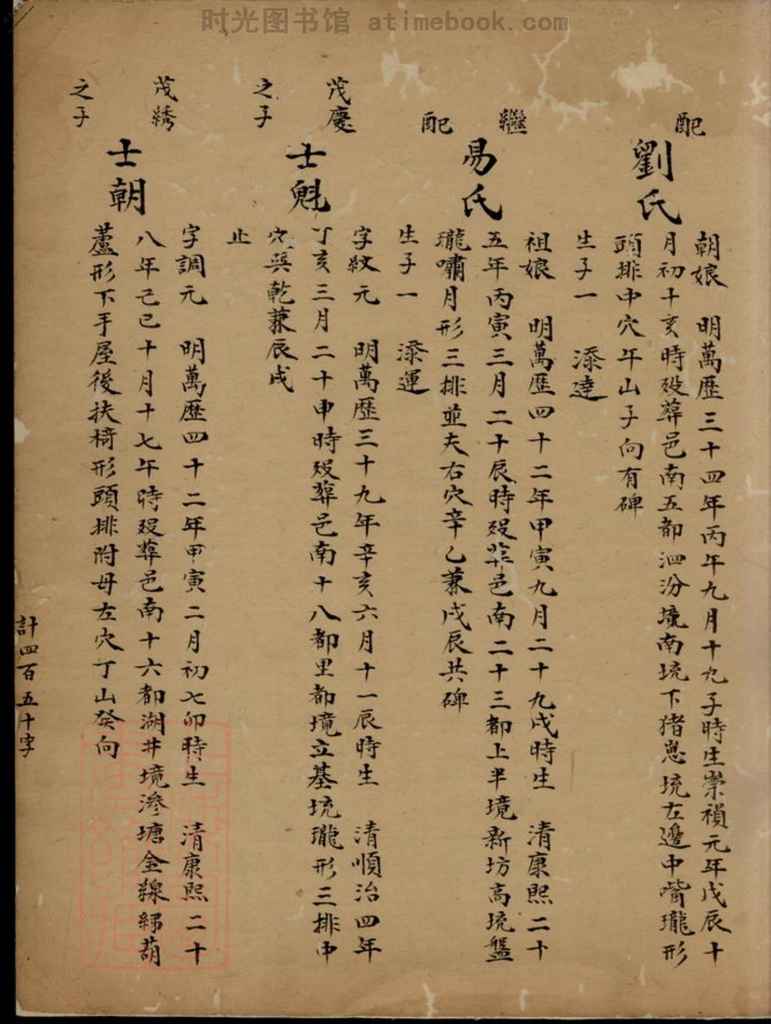 时光图书馆 atimebook.com
配
劉氏
朝娘 明萬歷三十四年丙午九月十九子時生崇禎元年戊辰十
月初十亥時殁葬邑南五都泗汾境南境下猪 境左邊中嘴瓏形
頭排中穴午山子向有碑
生子一 添達
繼
配
易氏
祖娘 明萬歷四十二年甲寅九月二十九戌時生 清康熙二十
五年丙寅三月二十辰時殁葬邑南二十三都上半境新坊高境盤
瓏嘯月形三排並夫右穴辛乙兼戌辰共碑
生子一 添運
茂慶
之子
士魁
字紋元 明萬歷三十九年辛亥六月十一辰時生 清順治四年
丁亥三月二十申時殁葬邑南十八都里都境立基境瓏形三排中
穴巽乾兼辰戌
止
茂綉
之子
士朝
字調元 明萬歷四十二年甲寅二月初七卯時生 清康熙二十
八年己巳十月十七午時殁葬邑南十六都湖井境滲塘金線 葫
蘆形下手屋後扶椅形頭排附母左穴丁山癸向
計四百五十字